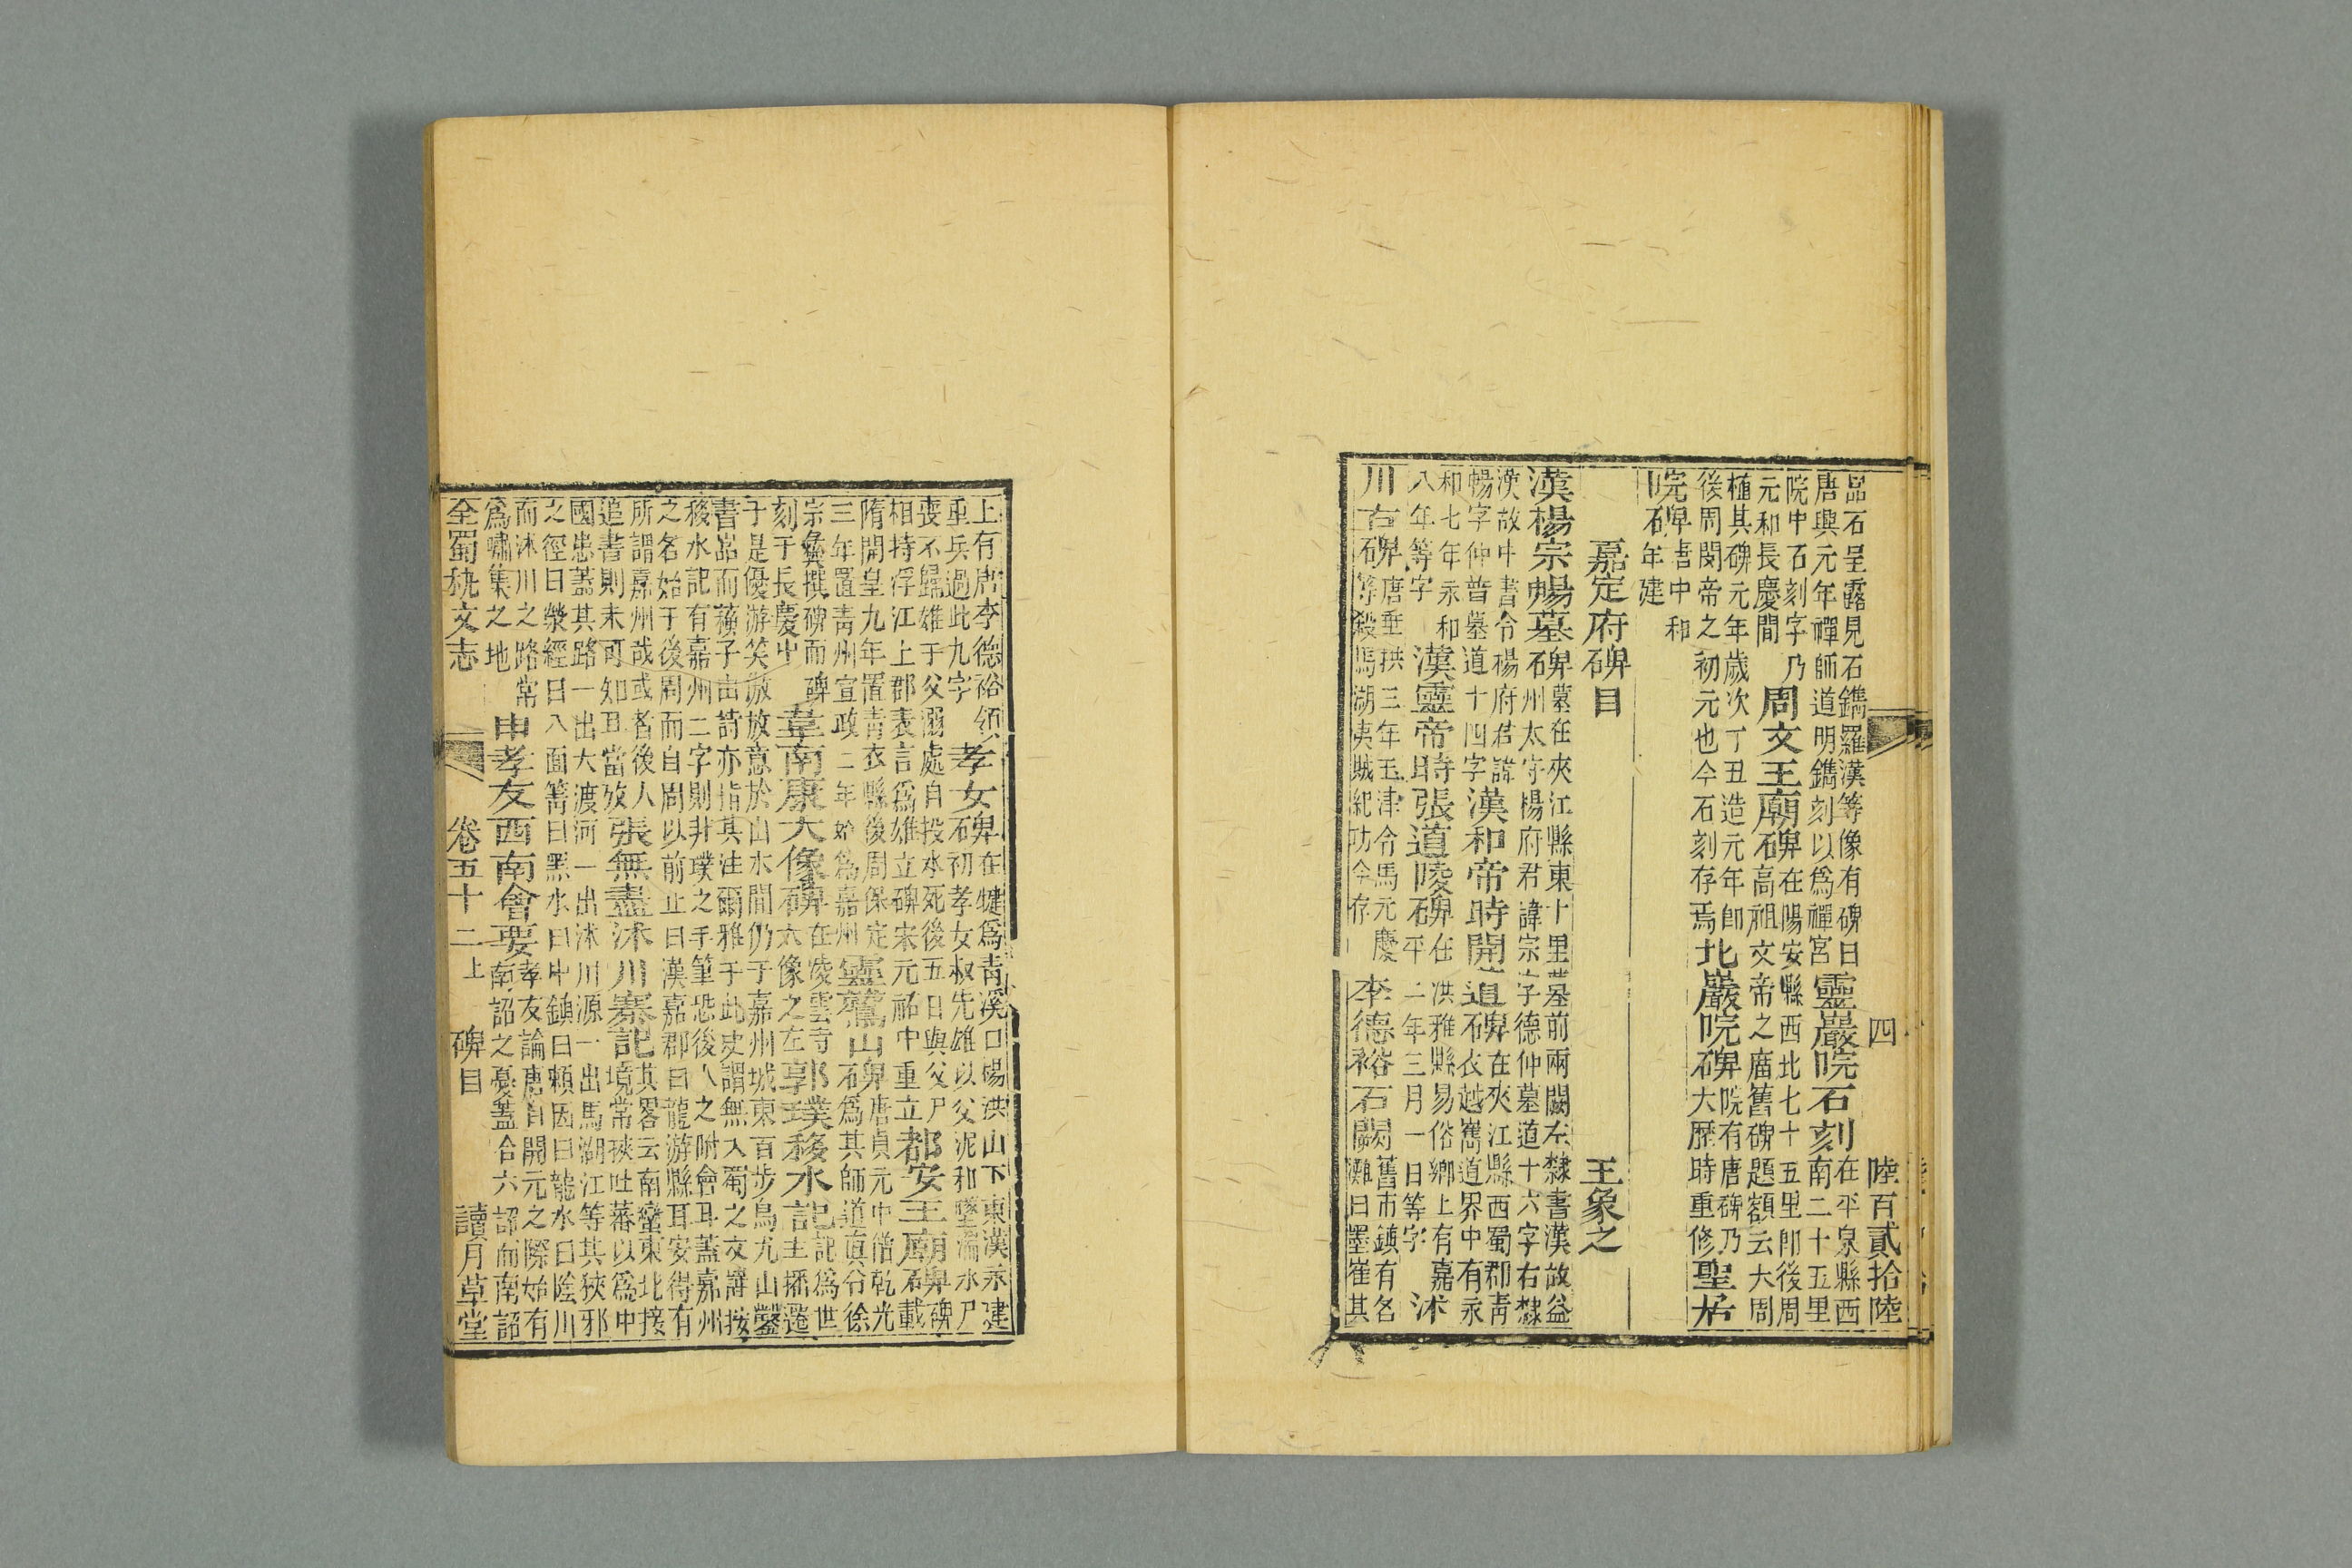 四　陸百貳拾陸
品石呈露見石鐫羅漢等像有碑曰
唐興元年禪師道明鐫刻以爲禪宮
靈巖院石刻
在平泉縣西
南二十五里
院中石刻字乃
元和長慶間
周文王廟碑
在陽安縣西北七十五里卽後周
高祖文帝之廟舊碑題額云大周
植其碑元年歲次丁丑造元年卽
後周閔帝之初元也今石刻存焉
北巖院碑
院有唐碑乃
大歷時重修
聖居
院
中和
年建
嘉定府碑目　王象之
漢楊宗暢墓碑
墓在夾江縣東十里墓前兩闕左隸書漢故益
州太守楊府君諱宗字德仲墓道十六字右隸
漢故中書令楊府君諱
暢字仲普墓道十四字
漢和帝時開道碑
在夾江縣西蜀郡靑
石衣越嶲道界中有永
和七年永和
八年等字
漢靈帝時張道陵碑
在洪雅縣易俗鄉上有嘉
平二年三月一日等字
沐
川古碑
唐垂拱三年玉津令馬元慶
石等殺馬湖夷賊紀功今存
李德裕石闕
舊市鎮有名
灘曰墨崔其
上有唐李德裕領
重兵過此九字
孝女碑
在犍爲靑溪口楊洪山下東漢永建
初孝女叔先雄以父泥和墮湍水尸
喪不歸雄于父溺處自投水死後五日與父尸
相持浮江上郡表言爲雄立碑宋元祐中重立
都安王廟碑
碑
石載
隋開皇九年置靑衣縣後周保定
三年置靑州宣政二年始爲嘉州
靈鷲山碑
唐貞元中僧乾光
石爲其師道直令徐
宗彝撰碑而碑
刻于長慶中
韋南康大像碑
在凌雲寺
大像之左
郭璞移水記
記爲世
主播遷
于是優游笑傲放意於山水間仍于嘉州城東百步烏尤山鑿
書嵓而蘋子由詩亦指其注爾雅于此史謂無入蜀之文譯按
移水記有嘉州二字則非璞之手筆恐後人之附會耳蓋嘉州
之名始于後周而自周以前止曰漢嘉郡曰龍游縣耳安得有
所謂嘉州哉或者後人
追書則未可知耳當攷
張無盡沐川寨記
其畧云南蠻東北接
境常挾吐蕃以爲中
國患蓋其路一出大渡河一出沐川源一出馬湖江等其狹邪
之徑曰滎經曰入面箐曰黑水曰中鎮曰賴因曰龍水曰陰川
而沐川之路常
爲嘯集之地
申孝友西南會要
孝友論唐自開元之際始有
南詔之憂蓋合六詔而南詔
全蜀秇文志　卷五十二上　碑目　讀月草堂